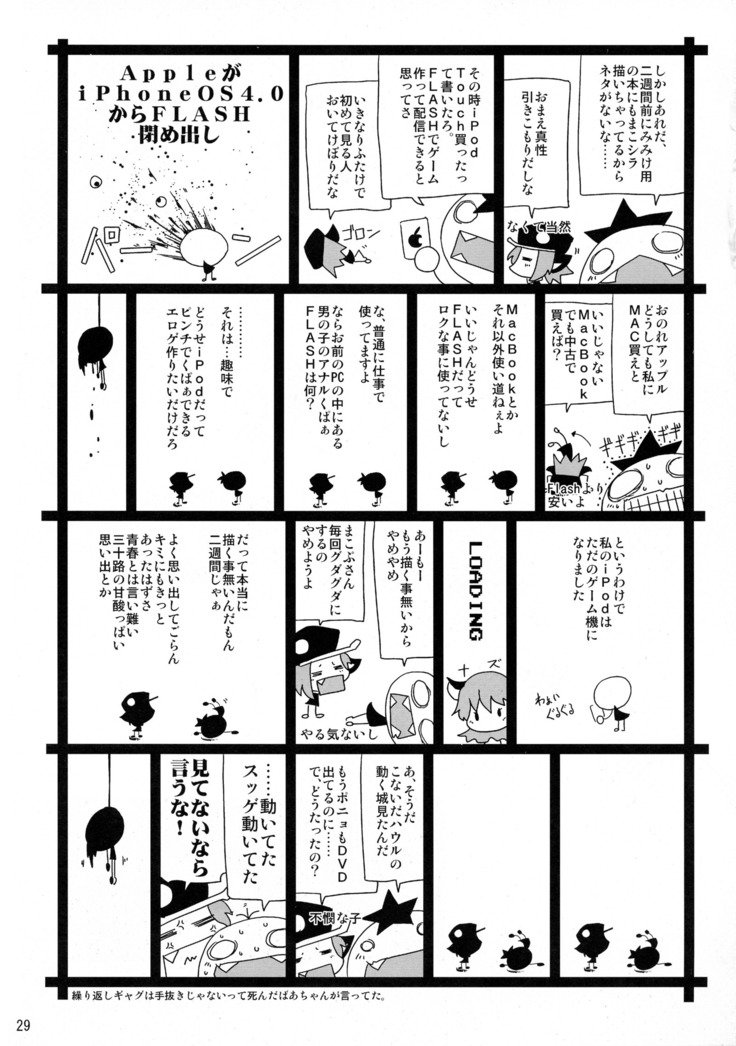 しかしあれだ、
二週間前にみみけ用
の本にもまこシラ
描いちゃってるから
ネタがないな……
おまえ真性
引きこもりだしな
なくて当然
その時iPod
Touch買ったっ
て書いたろ。
FLASHでゲーム
作って配信できると
思ってさ
いきなりふたけで
初めて見る人
おいてけぼりだな
ゴロン
Appleが
iPhoneOS4.0
からFLASH
閉め出し
パーン
おのれアップル
どうしても私に
MAC買えと
いいじゃない
MacBook
でも中古で
買えば?
ギギギギ
Flashより
安いよ
MacBookとか
それ以外使い道ねぇよ
いいじゃんどうせ
FLASHだって
ロクな事に使ってないし
な、普通に仕事で
使ってますよ
ならお前のPCの中にある
男の子のアナルくぱぁ
FLASHは何?
…………
それは…趣味で
どうせiPodだって
ピンチでくぱぁできる
エロゲ作りたいだけだろ
というわけで
私のiPodは
ただのゲーム機に
なりました
わぁい
ぐるぐる
LOADING
ズ
ナ
あーもー
もう描く事無いから
やめやめ
まこぷさん
毎回グダグダに
するの
やめようよ
やる気ないし
だって本当に
描く事無いんだもん
二週間じゃぁ
よく思い出してごらん
キミにもきっと
あったはずさ
青春とは言い難い
三十路の甘酸っぱい
思い出とか
あ、そうだ
こないだハウルの
動く城見たんだ
もうポニョもDVD
出てるのに……
で、どうだったの?
不憫な子
……動いてた
スッゲ動いてた
見てないなら
言うな!
繰り返しギャグは手抜きじゃないって死んだばあちゃんが言ってた。
29